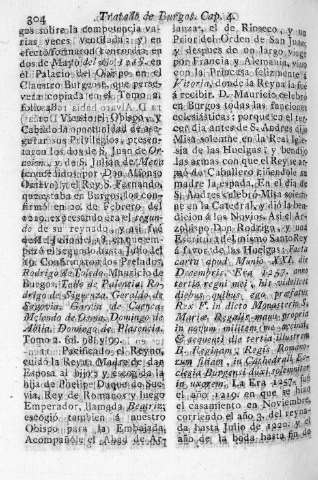 304 Tratado de Burgos. Cap. 4.
gos sobre la competencia va-
rias veces ventilada; y en
efecto
dos de Mayo del
el Palacio del Obispo en el
Claustro Burgense, que perse-
vera copiada en el Tomo 2.
folio 481.
Viendo el Obispo, y
Cabildo la oportunidad de ase-
gurar sus Privilegios, presen-
taron los dos de S. Juan de
y de S. Julian de Mena
(concedidos por Don Alfonso
Octavo) y el Rey S. Fernando,
que estaba en Burgos, los con-
firmó en 20. de Febrero, del
1220. expresando era el segun-
do de su reynado, y asi fue
desde Junio del 18. en que em-
pezó el segundo hasta Julio del
19. Confirmaron los Prelados
Rodrigo de Toledo. Mauricio de
Burgos. Tello de Palencia. Ro-
drigo de Siguenza. Geraldo de
Segovia. Garcia de Cuenca.
Melendo de Osma. Domingo de
Abila. Domingo de Plasencia.
Tomo 2. fol. 98. y 99.
Pacificado el Reyno,
cuidó la Reyna Madre de dar
Esposa al hijo, y escogida la
hija de Phelipe Duque de Sue-
via, Rey de Romanos y luego
Emperador, llamada Beatriz;
escogió tambien á nuestro
Obispo para la Embajada,
Acompañóle el Abad de Ar-
lanza, el de Rioseco, y un
Prior del Orden de San Juan,
y despues de un largo viage
por Francia y Alemania, vino
con la Princesa felizmente á
Vitoria, donde la Reyna la fue
á recibir. D. Mauricio celebró
en Burgos todas las funciones
eclesiasticas: porque en el ter-
cer dia antes de S. Andres dijo
Misa solemne en la Real Igle-
sia de las Huelgas: y bendijo
las armas con que el Rey se ar-
mó de Caballero ciñendole su
madre la espada. En el dia de
S. Andres celebró Misa solem-
ne en la Catedral, y dió la ben-
dicion á los Novios. Asi el Ar-
zobispo Don Rodrigo, y una
Escritura del mismo Santo Rey
á favor de las Huelgas: Facta
carta apud Munio XII. die
Decembris. Era 1257. anno
tertio regni mei, his videlicet
diebus quibus ego præfatus
Rex F. in dicto Monasterio S.
Mariæ Regalis manu propria
in novum militem me accinxi,
& sequenti die tertia illustrem
B. Reginam, Regis Romano-
rum filiam, in Cathedrali Ec-
clesia Burgensi duxi solemniter
in uxorem. La Era 1257. fue
el año 1219. en que se hizo
el casamiento en Noviembre,
corriendo el año 3. del reyna-
do, hasta Julio de 1220. y el
año de la boda hasta fin de